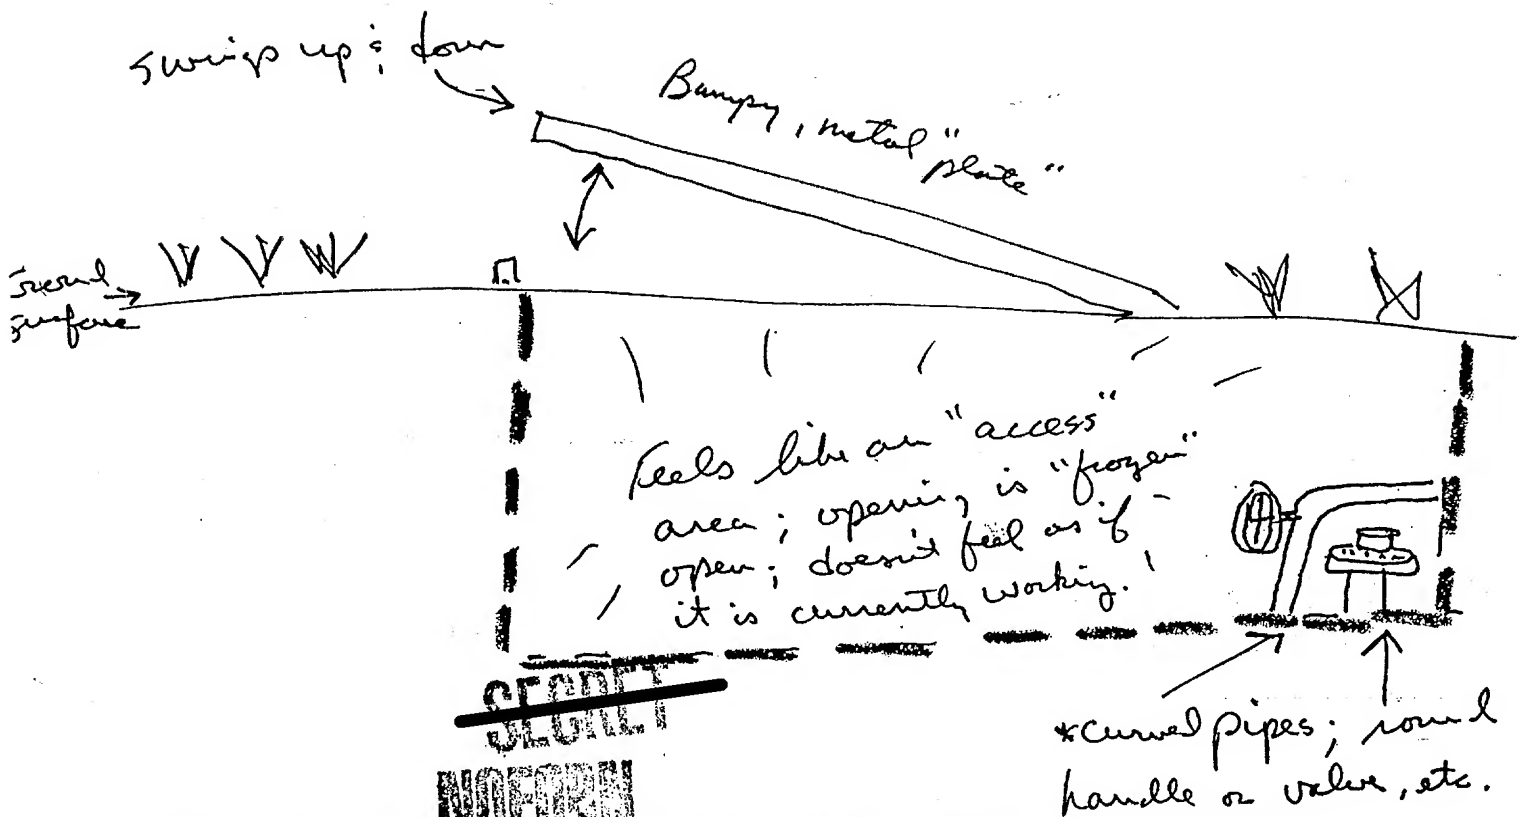 swings up & down
Bumpy, metal "
plate"
Ground
surface
Feels like an "access"
area; opening is "frozen"
open; doesn't feel as if
it is currently working.
*curved pipes; round
handle or valve, etc.
SECRET
NOFORN